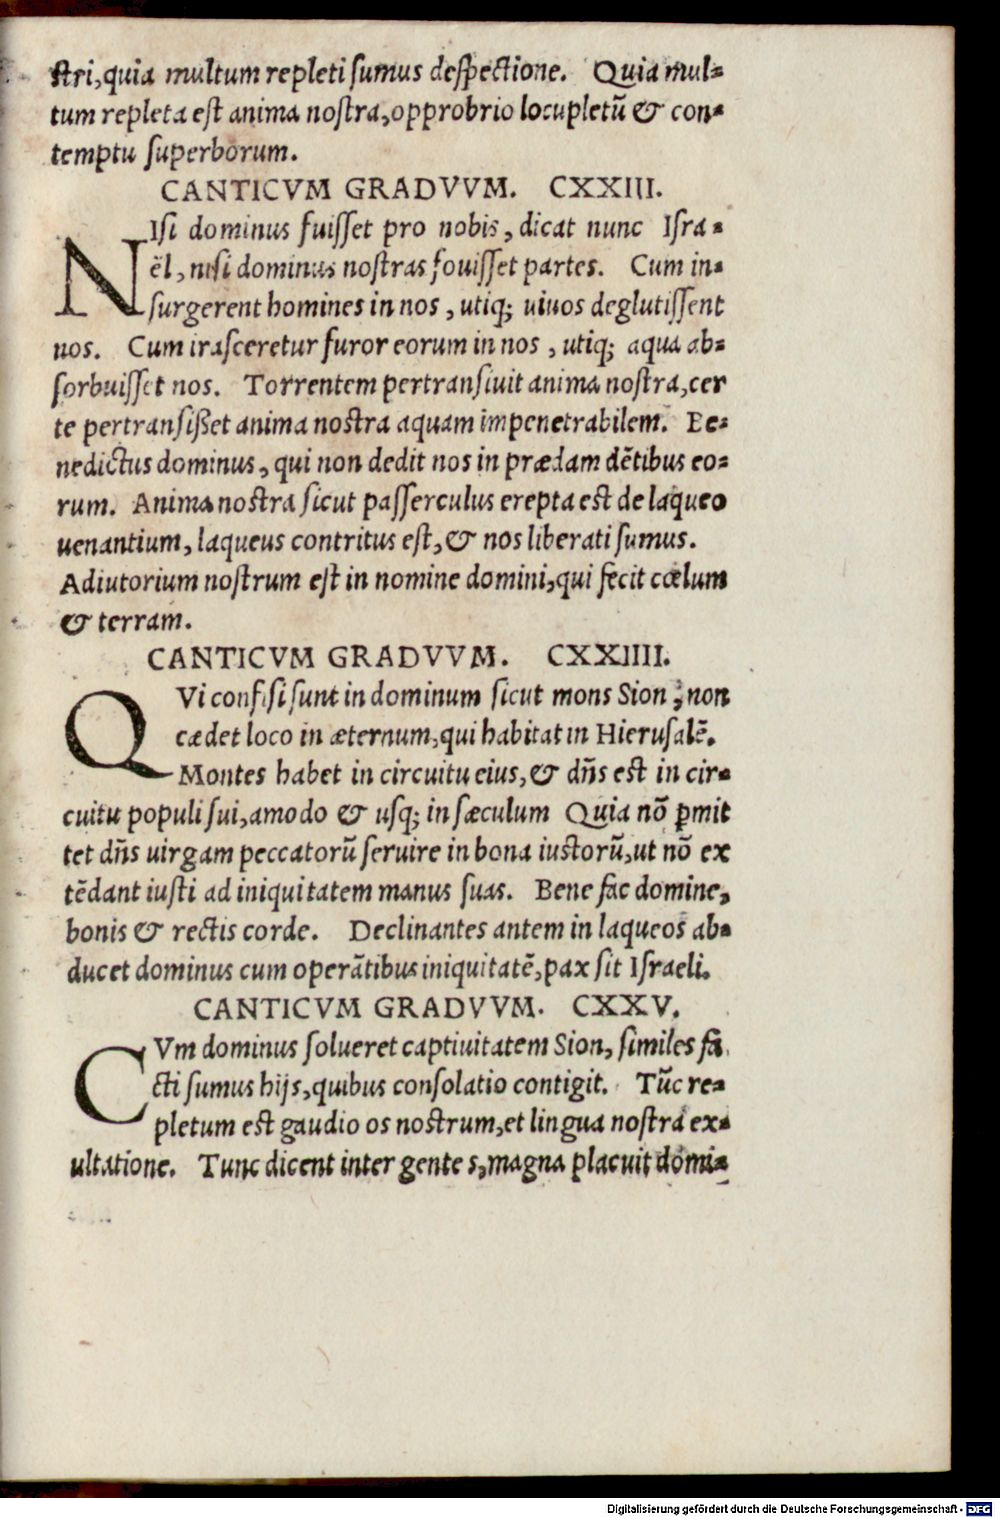 ſtri, quia multum repleti ſumus deſpectione. Quia mul-
tum repleta eſt anima noſtra, opprobrio locupletū & con-
temptu ſuperborum.
CANTICVM GRADVVM. CXXIII.
NIſi dominus fuiſſet pro nobis, dicat nunc Iſra-
ël, niſi dominus noſtras fouiſſet partes. Cum in-
ſurgerent homines in nos, utiq; uiuos deglutiſſent
nos. Cum iraſceretur furor eorum in nos, utiq; aqua ab-
ſorbuiſſet nos. Torrentem pertranſiuit anima noſtra, cer
te pertranſißet anima noſtra aquam impenetrabilem. Be-
nedictus dominus, qui non dedit nos in prædam dētibus eo-
rum. Anima noſtra ſicut paſſerculus erepta eſt de laqueo
uenantium, laqueus contritus eſt, & nos liberati ſumus.
Adiutorium noſtrum eſt in nomine domini, qui fecit cœlum
& terram.
CANTICVM GRADVVM. CXXIIII.
QVi confiſi ſunt in dominum ſicut mons Sion, non
cædet loco in æternum, qui habitat in Hieruſalē.
Montes habet in circuitu eius, & dn̄s eſt in cir-
cuitu populi ſui, amodo & uſq; in ſæculum Quia nō ꝑmit
tet dn̄s uirgam peccatorū ſeruire in bona iuſtorū, ut nō ex
tēdant iuſti ad iniquitatem manus ſuas. Bene fac domine,
bonis & rectis corde. Declinantes antem in laqueos ab-
ducet dominus cum operātibus iniquitatē, pax ſit Iſraeli.
CANTICVM GRADVVM. CXXV.
CVm dominus ſolueret captiuitatem Sion, ſimiles fa
cti ſumus hijs, quibus conſolatio contigit. Tūc re-
pletum eſt gaudio os noſtrum, et lingua noſtra ex-
ultatione. Tunc dicent inter gentes, magna placuit domi-
Digitalisierung gefördert durch die Deutsche Forschungsgemeinschaft - DFG